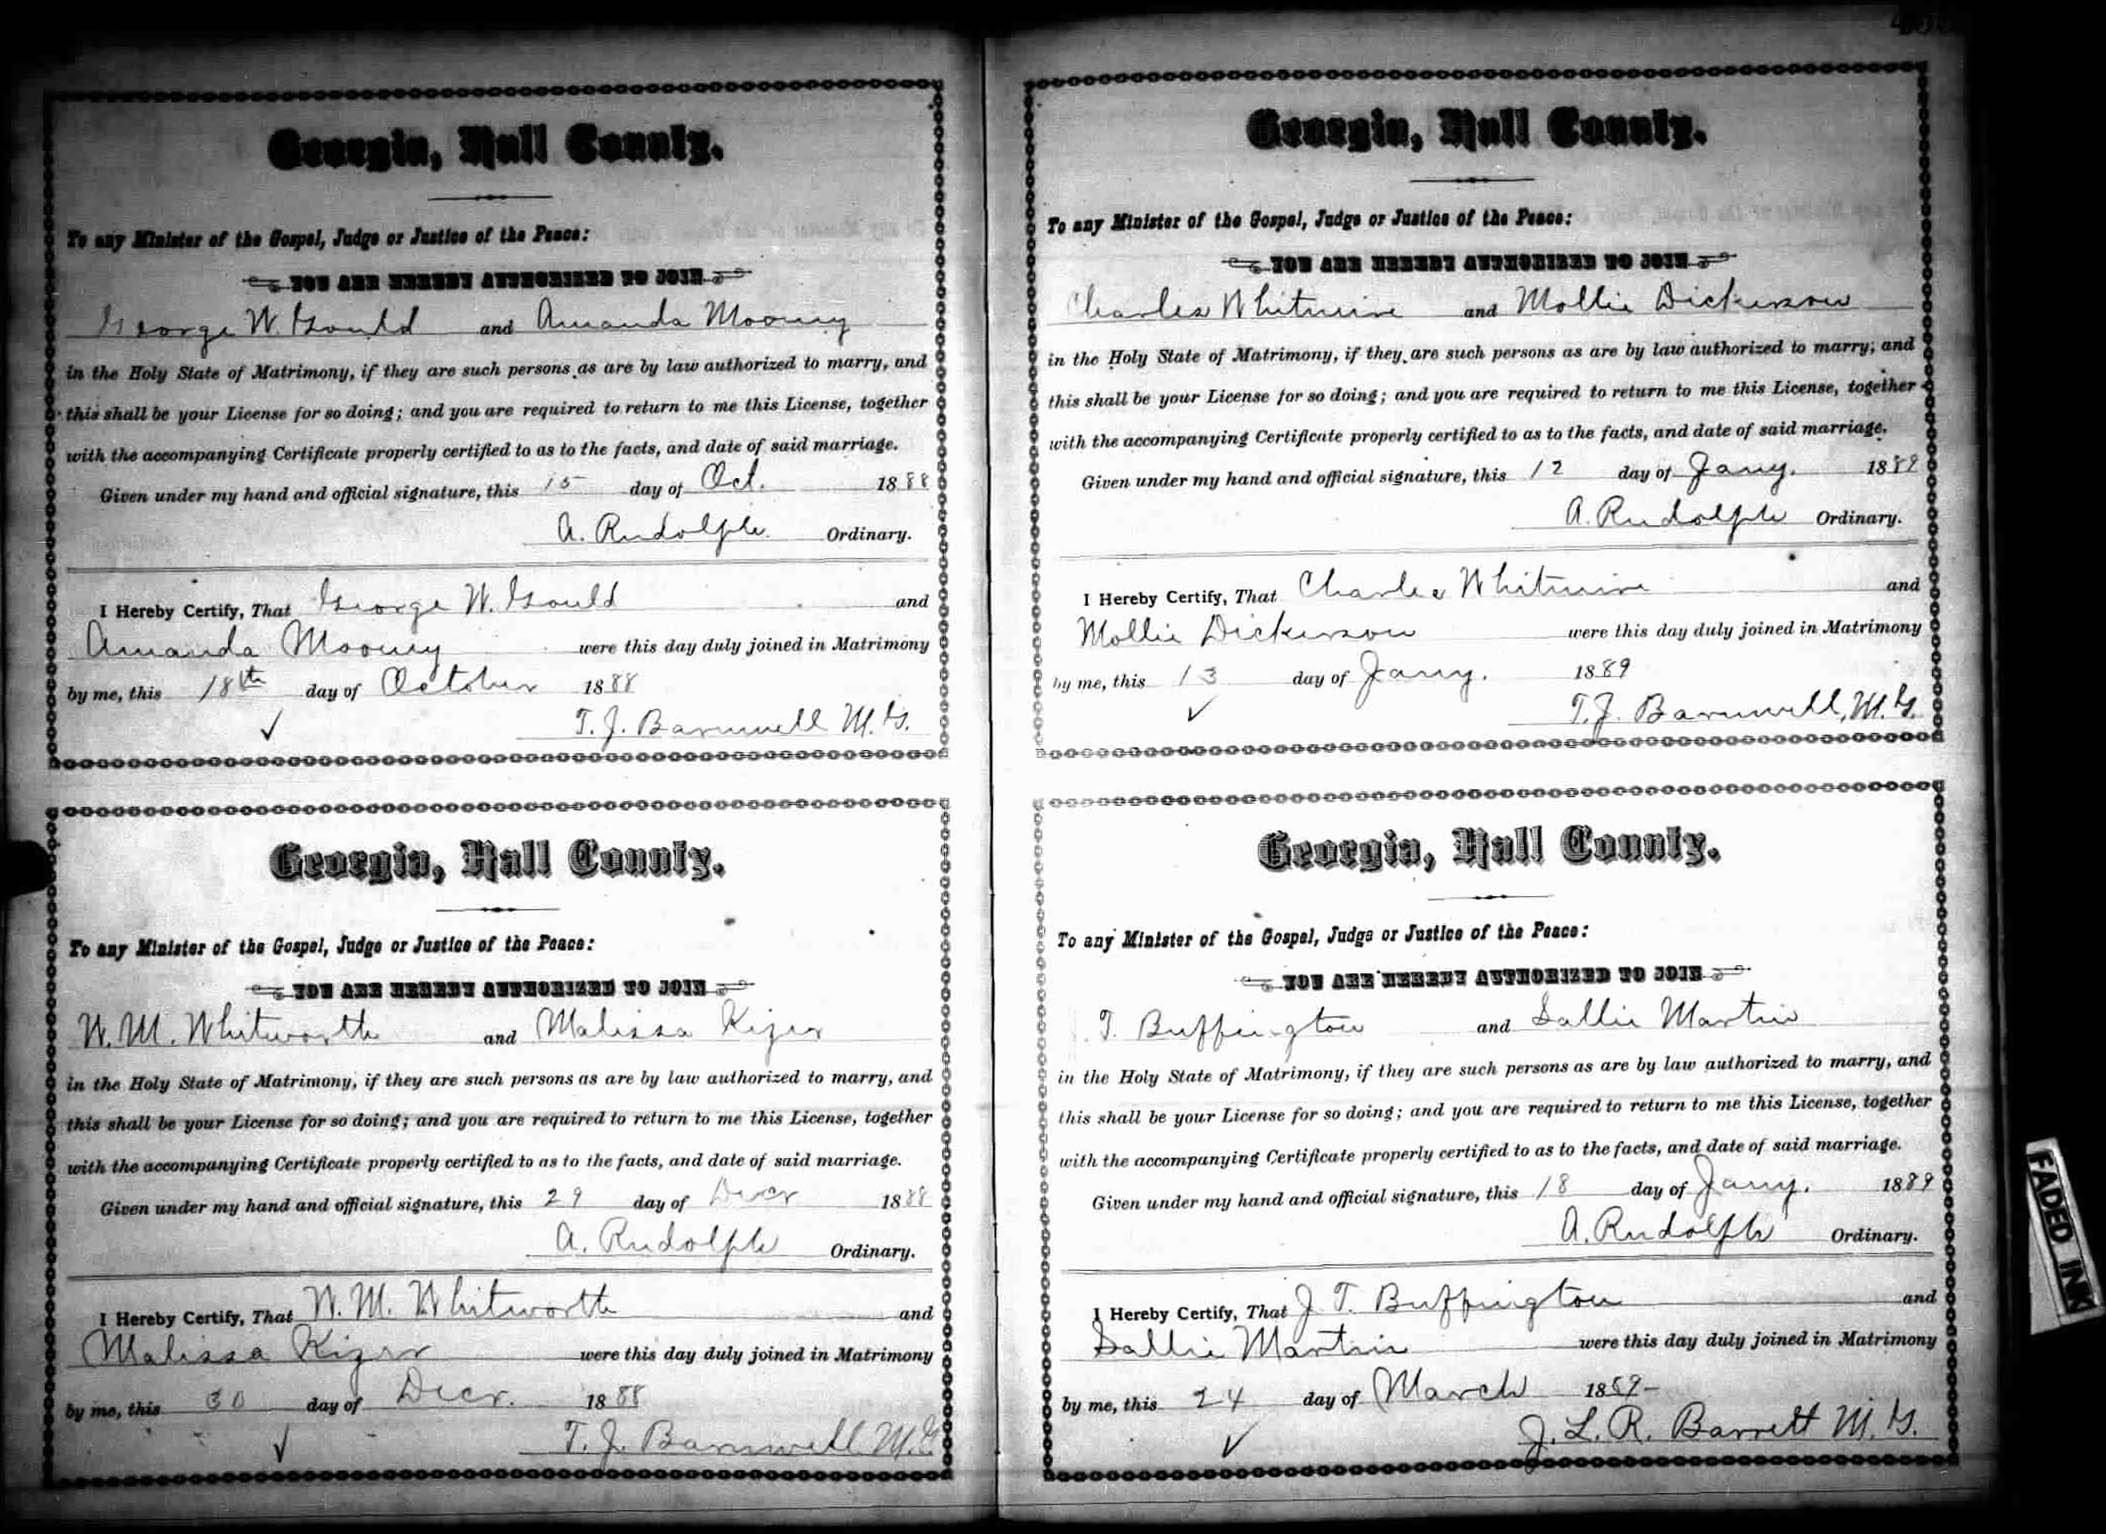 Georgia, Hall County.
To any Minister of the Gospel, Judge or Justice of the Peace:
YOU ARE HEREBY AUTHORIZED TO JOIN
George W. Gould and Amanda Mooney
in the Holy State of Matrimony, if they are such persons as are by law authorized to marry, and
this shall be your License for so doing; and you are required to return to me this License, together
with the accompanying Certificate properly certified to as to the facts, and date of said marriage.
Given under my hand and official signature, this 15 day of Oct. 1888
A. Rudolph Ordinary.
I Hereby Certify, That George W. Gould and
Amanda Mooney were this day duly joined in Matrimony
by me, this 18th day of October 1888
T. J. Barnwell M. G.
Georgia, Hall County.
To any Minister of the Gospel, Judge or Justice of the Peace:
YOU ARE HEREBY AUTHORIZED TO JOIN
W. M. Whitworth and Malissa Kizer
in the Holy State of Matrimony, if they are such persons as are by law authorized to marry, and
this shall be your License for so doing; and you are required to return to me this License, together
with the accompanying Certificate properly certified to as to the facts, and date of said marriage.
Given under my hand and official signature, this 29 day of Decr 1888
A. Rudolph Ordinary.
I Hereby Certify, That W. M. Whitworth and
Malissa Kizer were this day duly joined in Matrimony
by me, this 30 day of Decr. 1888
T. J. Barnwell M. G.
Georgia, Hall County.
To any Minister of the Gospel, Judge or Justice of the Peace:
YOU ARE HEREBY AUTHORIZED TO JOIN
Charles Whitmire and Mollie Dickerson
in the Holy State of Matrimony, if they are such persons as are by law authorized to marry; and
this shall be your License for so doing; and you are required to return to me this License, together
with the accompanying Certificate properly certified to as to the facts, and date of said marriage.
Given under my hand and official signature, this 12 day of Jany. 1889
A. Rudolph Ordinary.
I Hereby Certify, That Charlie Whitmire and
Mollie Dickerson were this day duly joined in Matrimony
by me, this 13 day of Jany. 1889
T. J. Barnwell, M. G.
Georgia, Hall County.
To any Minister of the Gospel, Judge or Justice of the Peace:
YOU ARE HEREBY AUTHORIZED TO JOIN
T. Buffington and Sallie Martin
in the Holy State of Matrimony, if they are such persons as are by law authorized to marry, and
this shall be your License for so doing; and you are required to return to me this License, together
with the accompanying Certificate properly certified to as to the facts, and date of said marriage.
Given under my hand and official signature, this 18 day of Jany. 1889
A. Rudolph Ordinary.
I Hereby Certify, That J. T. Buffington and
Sallie Martin were this day duly joined in Matrimony
by me, this 24 day of March 1889-
J. L. R. Barrett M. G.
FADED INK